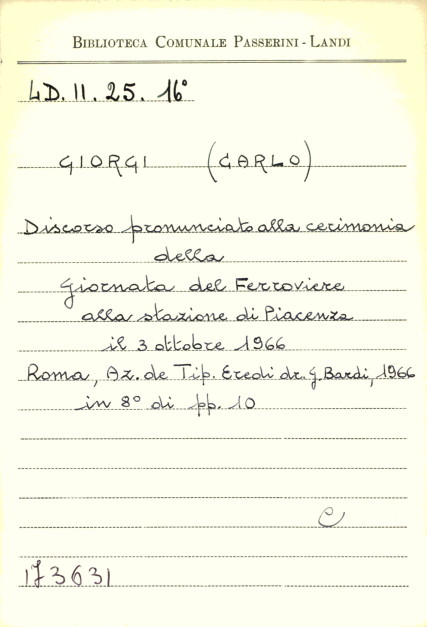 BIBLIOTECA COMUNALE PASSERINI - LANDI
4D. II. 25. 16°
GIORGI (CARLO)
Discorso pronunciato alla cerimonia
della
Giornata del Ferroviere
alla stazione di Piacenza
il 3 ottobre 1966
Roma, Az. de Tip. Eredi dr. G. Bardi, 1966
in 8° di pp. 10
C
173631